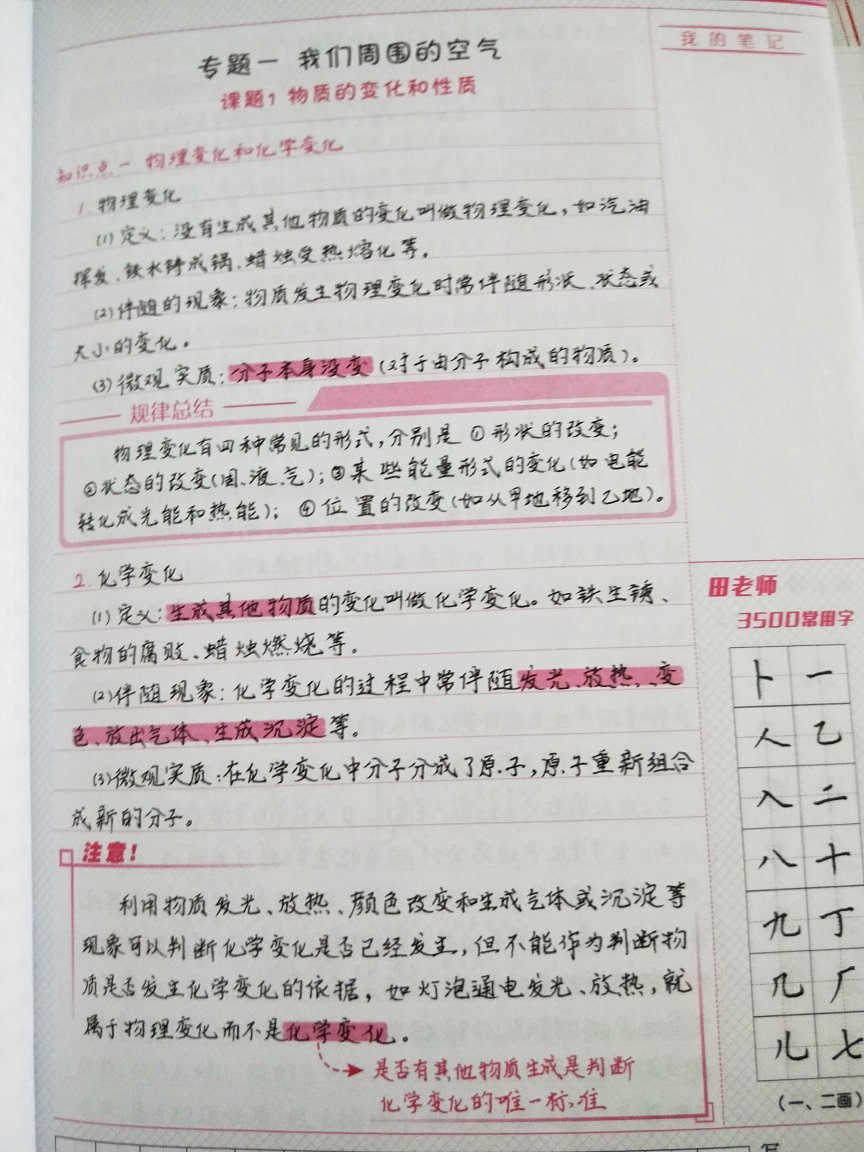 专题一 我们周围的空气
课题1 物质的变化和性质
我的笔记
知识点一 物理变化和化学变化
1. 物理变化
(1)定义:没有生成其他物质的变化叫做物理变化,如汽油
挥发、铁水铸成锅、蜡烛受热熔化等。
(2)伴随的现象:物质发生物理变化时常伴随形状、状态或
大小的变化。
(3)微观实质:分子本身没变(对于由分子构成的物质)。
规律总结
物理变化有四种常见的形式,分别是①形状的改变;
②状态的改变(固、液、气);③某些能量形式的变化(如电能
转化成光能和热能);④位置的改变(如从甲地移到乙地)。
2. 化学变化
(1)定义:生成其他物质的变化叫做化学变化。如铁生锈、
食物的腐败、蜡烛燃烧等。
(2)伴随现象:化学变化的过程中常伴随发光、放热、变
色、放出气体、生成沉淀等。
(3)微观实质:在化学变化中分子分成了原子,原子重新组合
成新的分子。
注意!
利用物质发光、放热、颜色改变和生成气体或沉淀等
现象可以判断化学变化是否已经发生,但不能作为判断物
质是否发生化学变化的依据,如灯泡通电发光、放热,就
属于物理变化而不是化学变化。
是否有其他物质生成是判断
化学变化的唯一标准
田老师
3500常用字
卜 一
人 乙
入 二
八 十
九 丁
几 厂
儿 七
(一、二画)